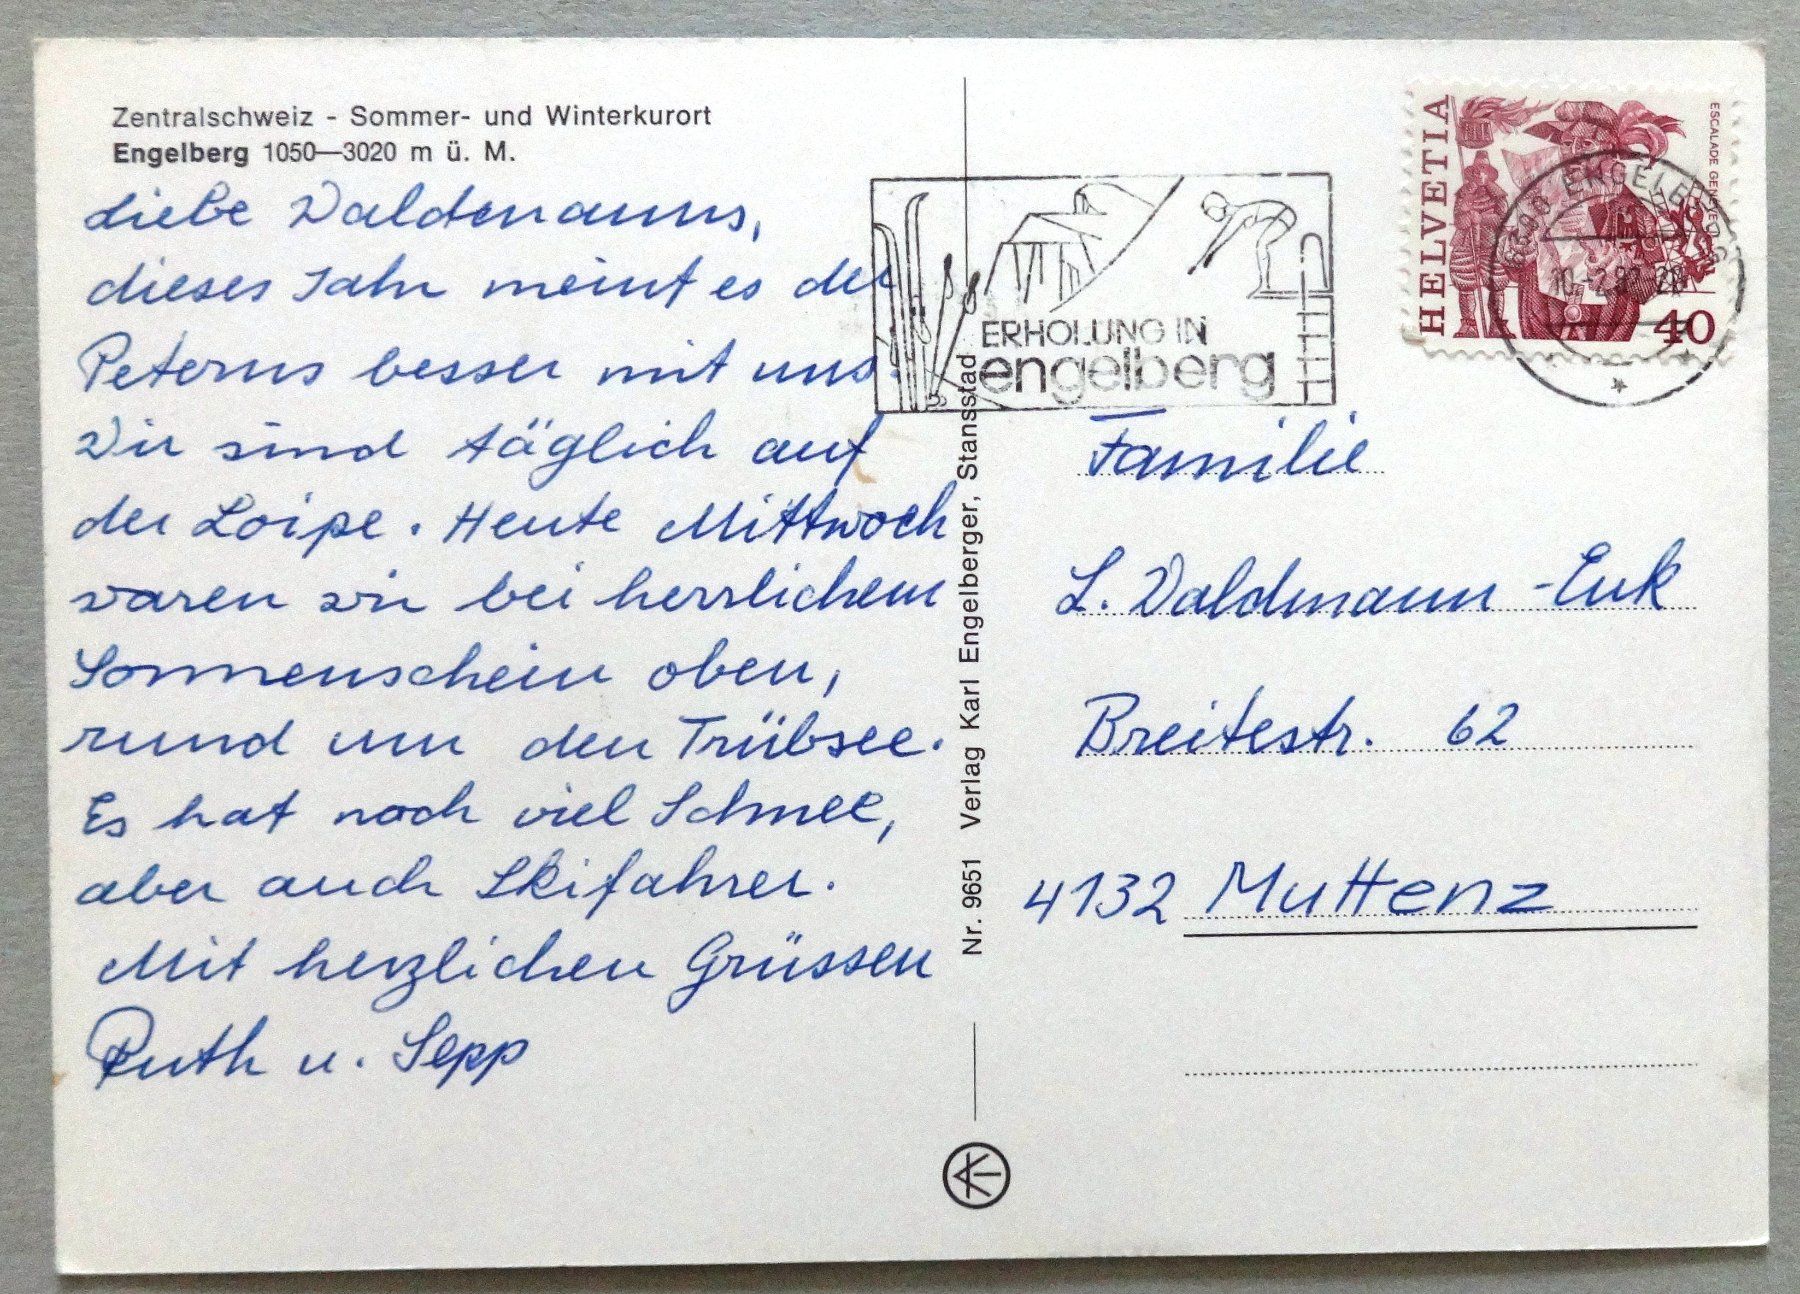 Zentralschweiz - Sommer- und Winterkurort
Engelberg 1050—3020 m ü. M.
Liebe Waldmanns,
dieses Jahr meint es der
Peterus besser mit uns.
Wir sind täglich auf
der Loipe. Heute Mittwoch
waren wir bei herrlichem
Sonnenschein oben,
rund um den Trübsee.
Es hat noch viel Schnee,
aber auch Skifahrer.
Mit herzlichen Grüssen
Ruth u. Sepp
Nr. 9651 Verlag Karl Engelberger, Stansstad
ERHOLUNG IN
engelberg
HELVETIA
ESCALADE GENÈVE
40
ENGELBERG
10.-2.82
Familie
L. Waldmann-Enk
Breitestr. 62
4132 Muttenz